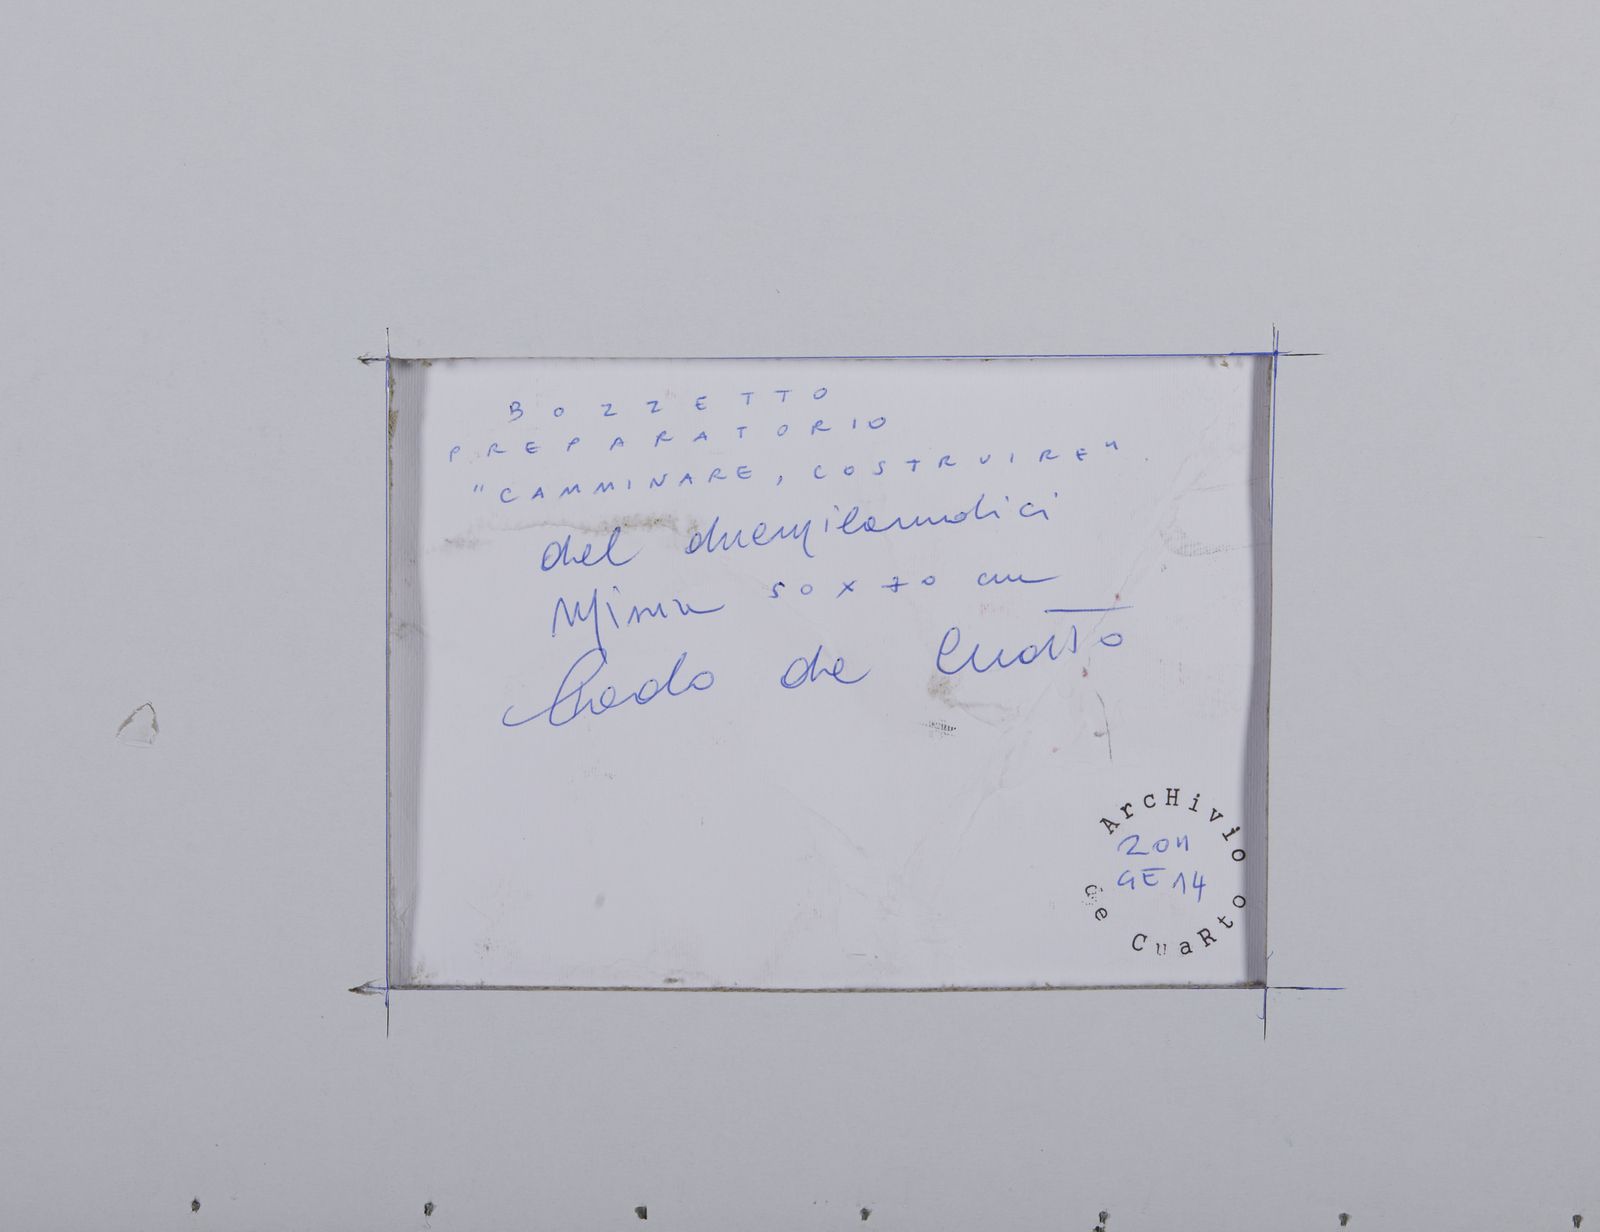 BOZZETTO
PREPARATORIO
"CAMMINARE, COSTRUIRE"
del duemilaundici
Misura 50 x 70 cm
de Cuarto
ArcHivio
2011
GE 14
de CuaRto